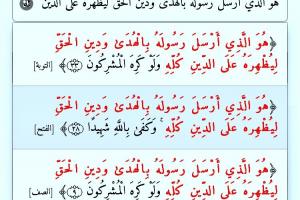 هو الذي أرسل رسوله بالهدى ودين الحق ليظهره على الدين
﴿هُوَ الَّذِي أَرْسَلَ رَسُولَهُ بِالْهُدَىٰ وَدِينِ الْحَقِّ
لِيُظْهِرَهُ عَلَى الدِّينِ كُلِّهِ وَلَوْ كَرِهَ الْمُشْرِكُونَ ﴿٣٣﴾﴾ [التوبة]
﴿هُوَ الَّذِي أَرْسَلَ رَسُولَهُ بِالْهُدَىٰ وَدِينِ الْحَقِّ
لِيُظْهِرَهُ عَلَى الدِّينِ كُلِّهِ ۚ وَكَفَىٰ بِاللَّهِ شَهِيدًا ﴿٢٨﴾﴾ [الفتح]
﴿هُوَ الَّذِي أَرْسَلَ رَسُولَهُ بِالْهُدَىٰ وَدِينِ الْحَقِّ
لِيُظْهِرَهُ عَلَى الدِّينِ كُلِّهِ وَلَوْ كَرِهَ الْمُشْرِكُونَ ﴿٩﴾﴾ [الصف]